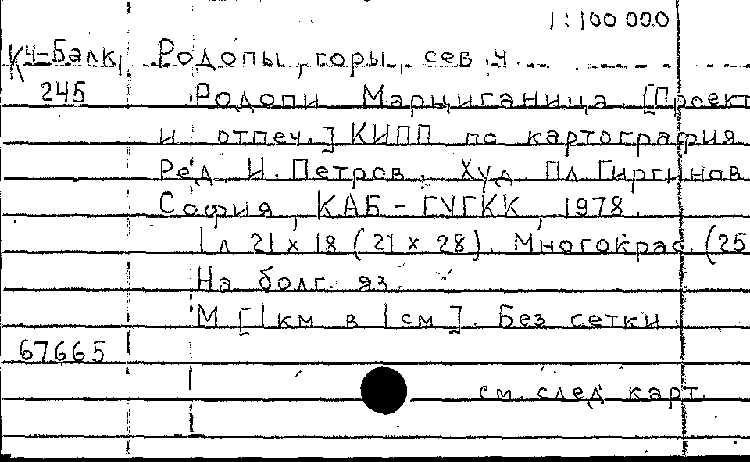 1:100 000
Кч-Балк, Родопы, горы, сев ч.
245 Родопи Марциганица. [Проект
и отпеч.] КИПП по картография
Ред. И. Петров. Худ. Пл. Гиргинов
София, КАБ - ГУГКК, 1978.
1 л 21 х 18 (21 х 28). Многокрас. (25
На болг. яз.
М [1 км в 1 см]. Без сетки
67665
см. след карт.